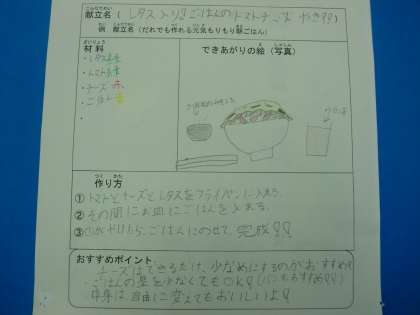 献立名（レタス入り!ごはんのトマトチーズやき!!）
例 献立名（だれでも作れる元気もりもり朝ごはん）
材料
・レタス 緑
・トマト 緑
・チーズ 赤
・ごはん 黄
できあがりの絵（写真）
作り方
① トマトとチーズとレタスをフライパンに入れる。
② その間にお皿にごはんを入れる。
③ ごはんにのせて、完成!!
おすすめポイント
チーズはできるだけ、少なめにするのがおすすめ
ごはんの量を少なくてもOK!
中身は、自由に変えてもおいしいよ!